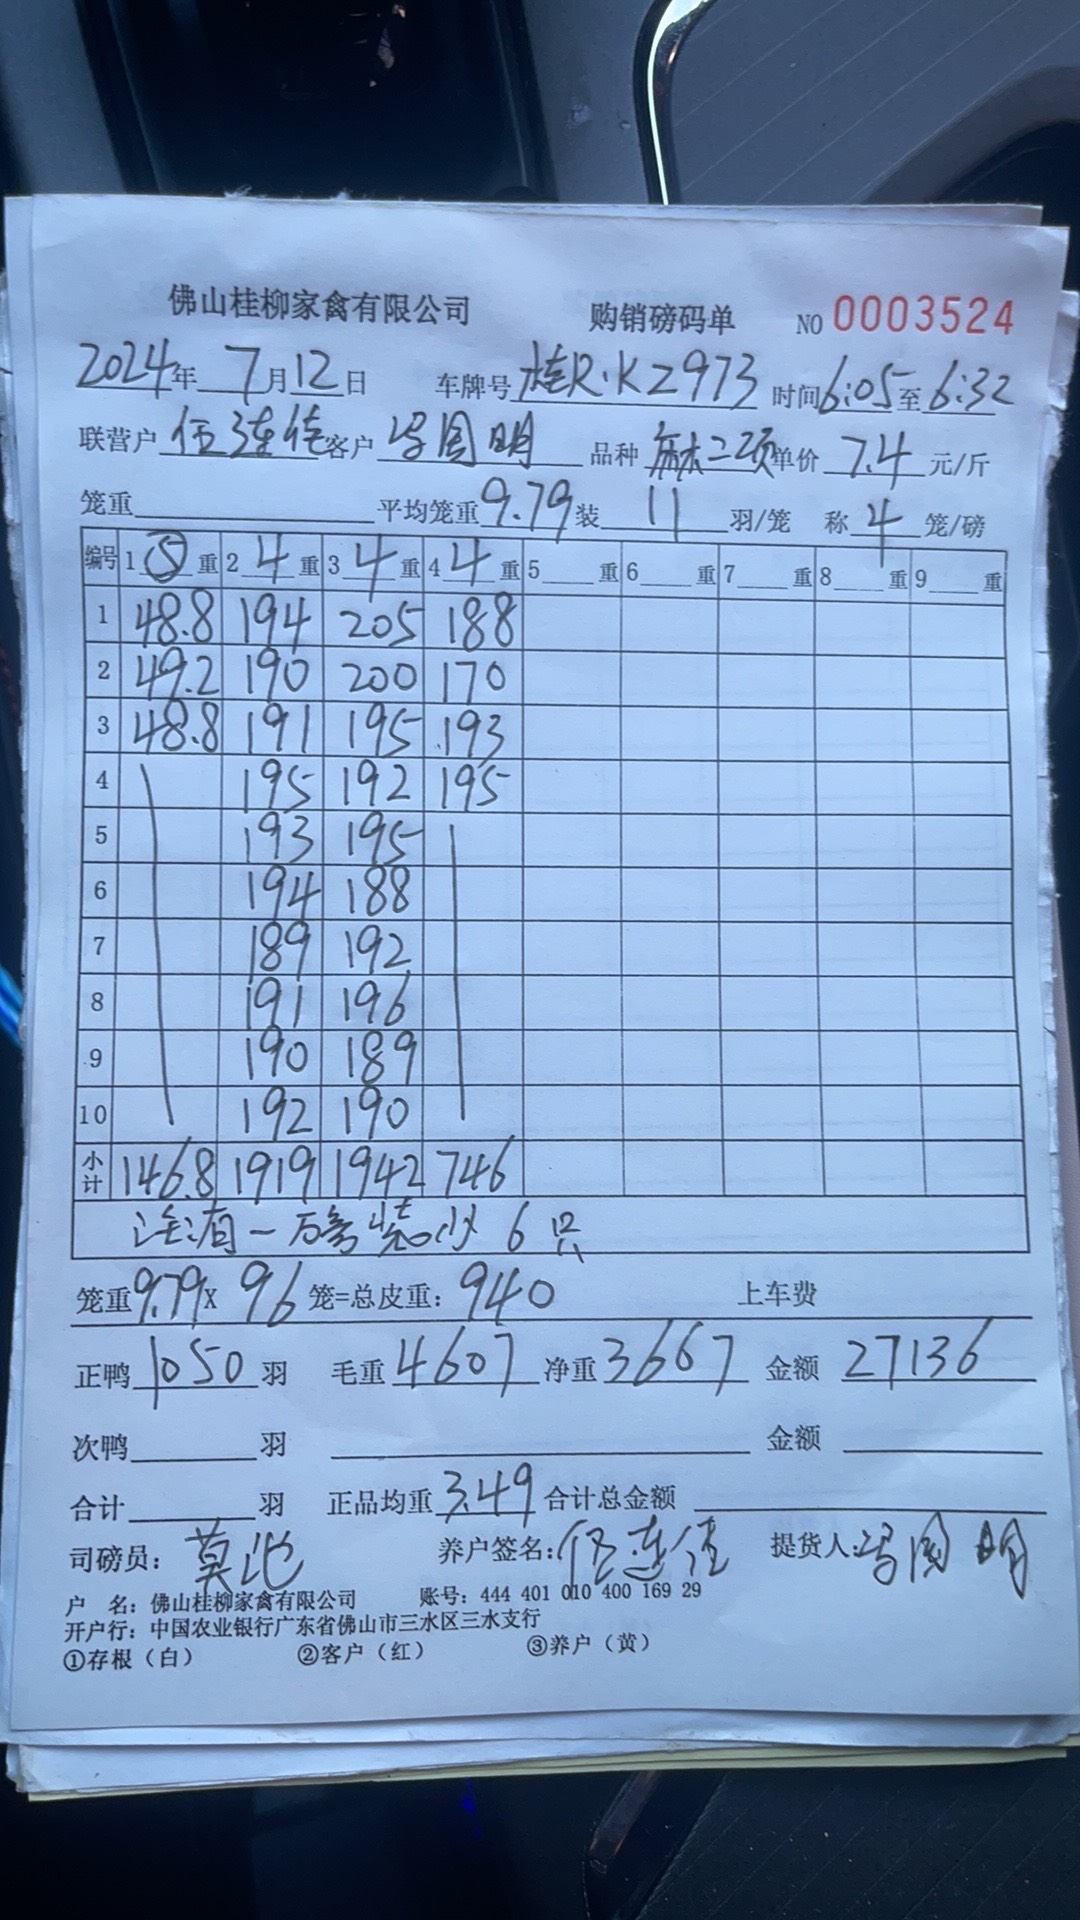 佛山桂柳家禽有限公司 购销磅码单 NO 0003524
2024年 7月12日 车牌号 桂R·KZ973 时间6:05至6:32
联营户 伍连佳 客户 冯国明 品种 麻二项 单价 7.4 元/斤
笼重 平均笼重9.79装 11 羽/笼 称 4 笼/磅
编号 1 ⑤ 重 2 4 重 3 4 重 4 4 重 5 重 6 重 7 重 8 重 9 重
1 48.8 194 205 188
2 49.2 190 200 170
3 48.8 191 195 193
4 195 192 195
5 193 195
6 194 188
7 189 192
8 191 196
9 190 189
10 192 190
小计 146.8 1919 1942 746
注:有一磅装少6只
笼重9.79X 96 笼=总皮重: 940 上车费
正鸭 1050 羽 毛重 4607 净重 3667 金额 27136
次鸭 羽 金额
合计 羽 正品均重 3.49 合计总金额
司磅员: 莫 养户签名: 伍连佳 提货人: 冯国明
户 名: 佛山桂柳家禽有限公司 账号: 444 401 010 400 169 29
开户行: 中国农业银行广东省佛山市三水区三水支行
①存根(白) ②客户(红) ③养户(黄)